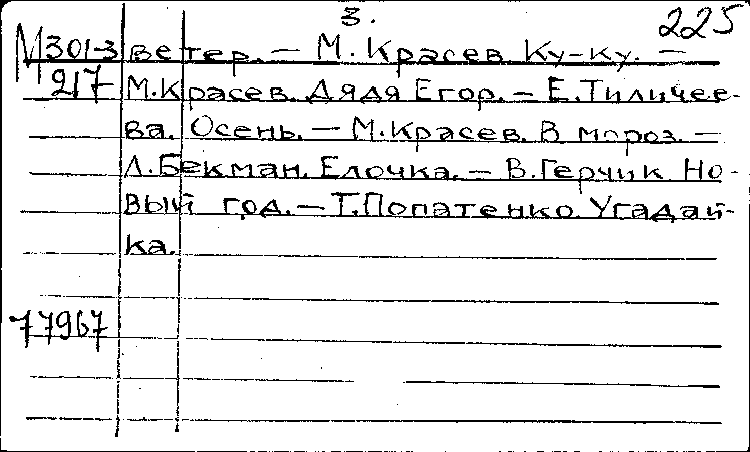 3. 225
М301-3 ветер. — М. Красев. Ку-ку. —
217 М. Красев. Дядя Егор. — Е. Тиличее-
ва. Осень. — М. Красев. В мороз. —
Л. Бекман. Елочка. — В. Герчик. Но-
вый год. — Т. Попатенко. Угадай-
ка.
77967